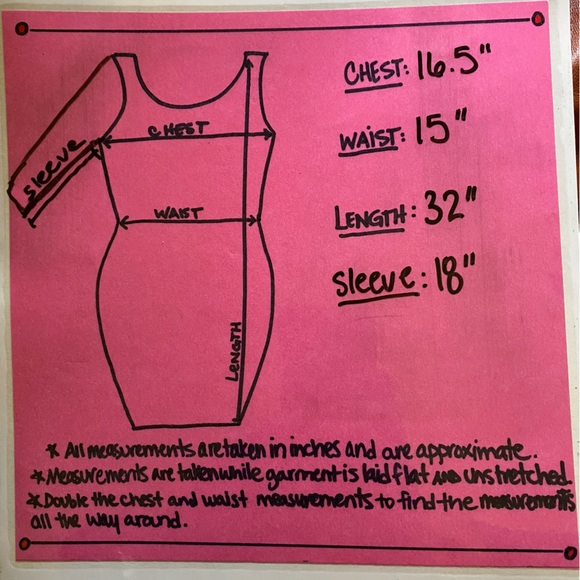 CHEST: 16.5"
CHEST
WAIST: 15"
SLEEVE
WAIST
LENGTH: 32"
SLEEVE: 18"
LENGTH
* All measurements are taken in inches and are approximate.
* Measurements are taken while garment is laid flat AND unstretched.
* Double the chest and waist measurements to find the measurements
all the way around.